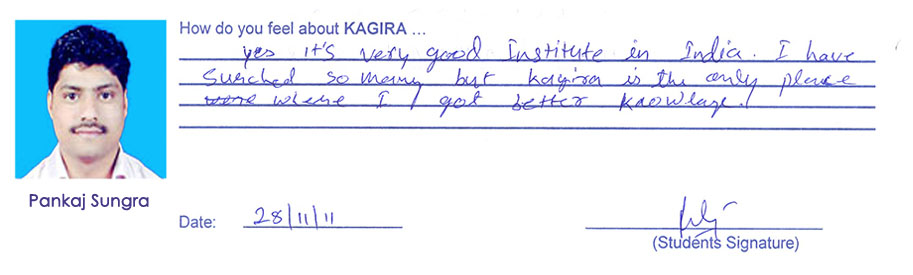 How do you feel about KAGIRA ...
yes it's very good Institute in India. I have
Surched so many but kagira is the only place
where I got better knowlage.
Pankaj Sungra
Date: 28/11/11
(Students Signature)